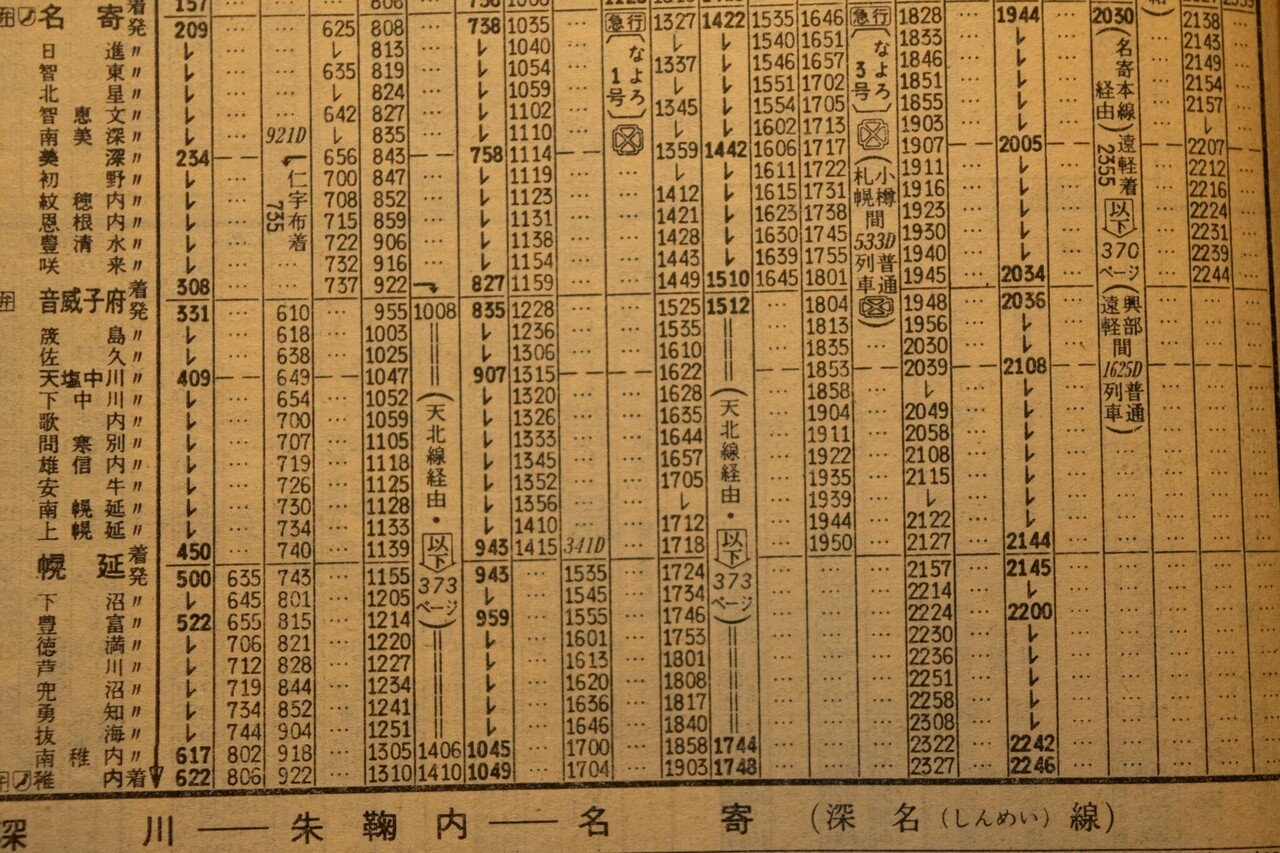 157 … … … 806 … 758 1008
弁 名寄 発 209 … … 625 808 … 738 1035 … 急行 1327 1422 1535 1646 急行 1828 … 1944 … 2030 … 2138 …
日進 〃 レ … … レ 813 … レ 1040 … なよろ1号 レ レ 1540 1651 なよろ3号 1833 … レ … (名寄本線経由) … 2143 …
智東 〃 レ … … 635 819 … レ 1054 … 1337 レ 1546 1657 1846 … レ … … 2149 …
北星 〃 レ … … レ 824 … レ 1059 … レ レ 1551 1702 1851 … レ … … 2154 …
智恵文 〃 レ … … 642 827 … レ 1102 … 1345 レ 1554 1705 1855 … レ … … 2157 …
南美深 〃 レ … 921D レ 835 … レ 1110 … レ レ 1602 1713 1903 … レ … … レ …
美深 〃 234 656 843 758 1114 1359 1442 1606 1717 1907 2005 遠軽着 2355 2207
初野 〃 レ … 仁宇布着 735 700 847 … レ 1119 … … レ レ 1611 1722 (小樽札幌間 533D 普通列車) 1911 … レ … … 2212 …
紋穂内 〃 レ … 708 852 … レ 1123 … … 1412 レ 1615 1731 1916 … レ … 以下 … 2216 …
恩根内 〃 レ … 715 859 … レ 1131 … … 1421 レ 1623 1738 1923 … レ … 370ページ … 2224 …
豊清水 〃 レ … 722 906 … レ 1138 … … 1428 レ 1630 1745 1930 … レ … … 2231 …
咲来 〃 レ … … 732 916 … レ 1154 … … 1443 レ 1639 1755 1940 … レ … … 2239 …
着 308 … … 737 922 827 1159 … … 1449 1510 1645 1801 1945 … 2034 … … 2244 …
弁 音威子府 発 331 … 610 … 955 1008 835 1228 … … 1525 1512 … 1804 1948 … 2036 … (興部遠軽間 1625D 普通列車) … … …
筬島 〃 レ … 618 … 1003 ‖ レ 1236 … … 1535 ‖ … 1813 1956 … レ … … … …
佐久 〃 レ … 638 … 1025 ‖ レ 1306 … … 1610 ‖ … 1835 … 2030 … レ … … … …
天塩中川 〃 409 649 1047 ‖ 907 1315 1622 ‖ 1853 2039 2108
下中川 〃 レ … 654 … 1052 (天北線経由・ レ 1320 … … 1628 (天北線経由・ … 1858 … レ … レ … … … …
歌内 〃 レ … 700 … 1059 レ 1326 … … 1635 … 1904 … 2049 … レ … … … …
問寒別 〃 レ … 707 … 1105 レ 1333 … … 1644 … 1911 … 2058 … レ … … … …
雄信内 〃 レ … 719 … 1118 レ 1345 … … 1657 … 1922 … 2108 … レ … … … …
安牛 〃 レ … 726 … 1125 レ 1352 … … 1705 … 1935 … 2115 … レ … … … …
南幌延 〃 レ … 730 … 1128 レ 1356 … … レ … 1939 … レ … レ … … … …
上幌延 〃 レ … 734 … 1133 以下 レ 1410 … … 1712 以下 … 1944 … 2122 … レ … … … …
着 450 … 740 … 1139 943 1415 341D … 1718 … 1950 … 2127 … 2144 … … … …
幌延 発 500 635 743 … 1155 373ページ) 943 … 1535 … 1724 373ページ) … … … 2157 … 2145 … … … …
下沼 〃 レ 645 801 … 1205 レ … 1545 … 1734 … … … 2214 … レ … … … …
豊富 〃 522 655 815 … 1214 959 … 1555 … 1746 … … … 2224 … 2200 … … … …
徳満 〃 レ 706 821 … 1220 ‖ レ … 1601 … 1753 ‖ … … … 2230 … レ … … … …
芦川 〃 レ 712 828 … 1227 ‖ レ … 1613 … 1801 ‖ … … … 2236 … レ … … … …
兜沼 〃 レ 719 844 … 1234 ‖ レ … 1620 … 1808 ‖ … … … 2251 … レ … … … …
勇知 〃 レ 734 852 … 1241 ‖ レ … 1636 … 1817 ‖ … … … 2258 … レ … … … …
抜海 〃 レ 744 904 … 1251 ‖ レ … 1646 … 1840 ‖ … … … 2308 … レ … … … …
南稚内 〃 617 802 918 … 1305 1406 1045 … 1700 … 1858 1744 … … … 2322 … 2242 … … … …
弁 稚内 着 622 806 922 … 1310 1410 1049 … 1704 … 1903 1748 … … … 2327 … 2246 … … … …
深川――朱鞠内――名寄(深名(しんめい)線)